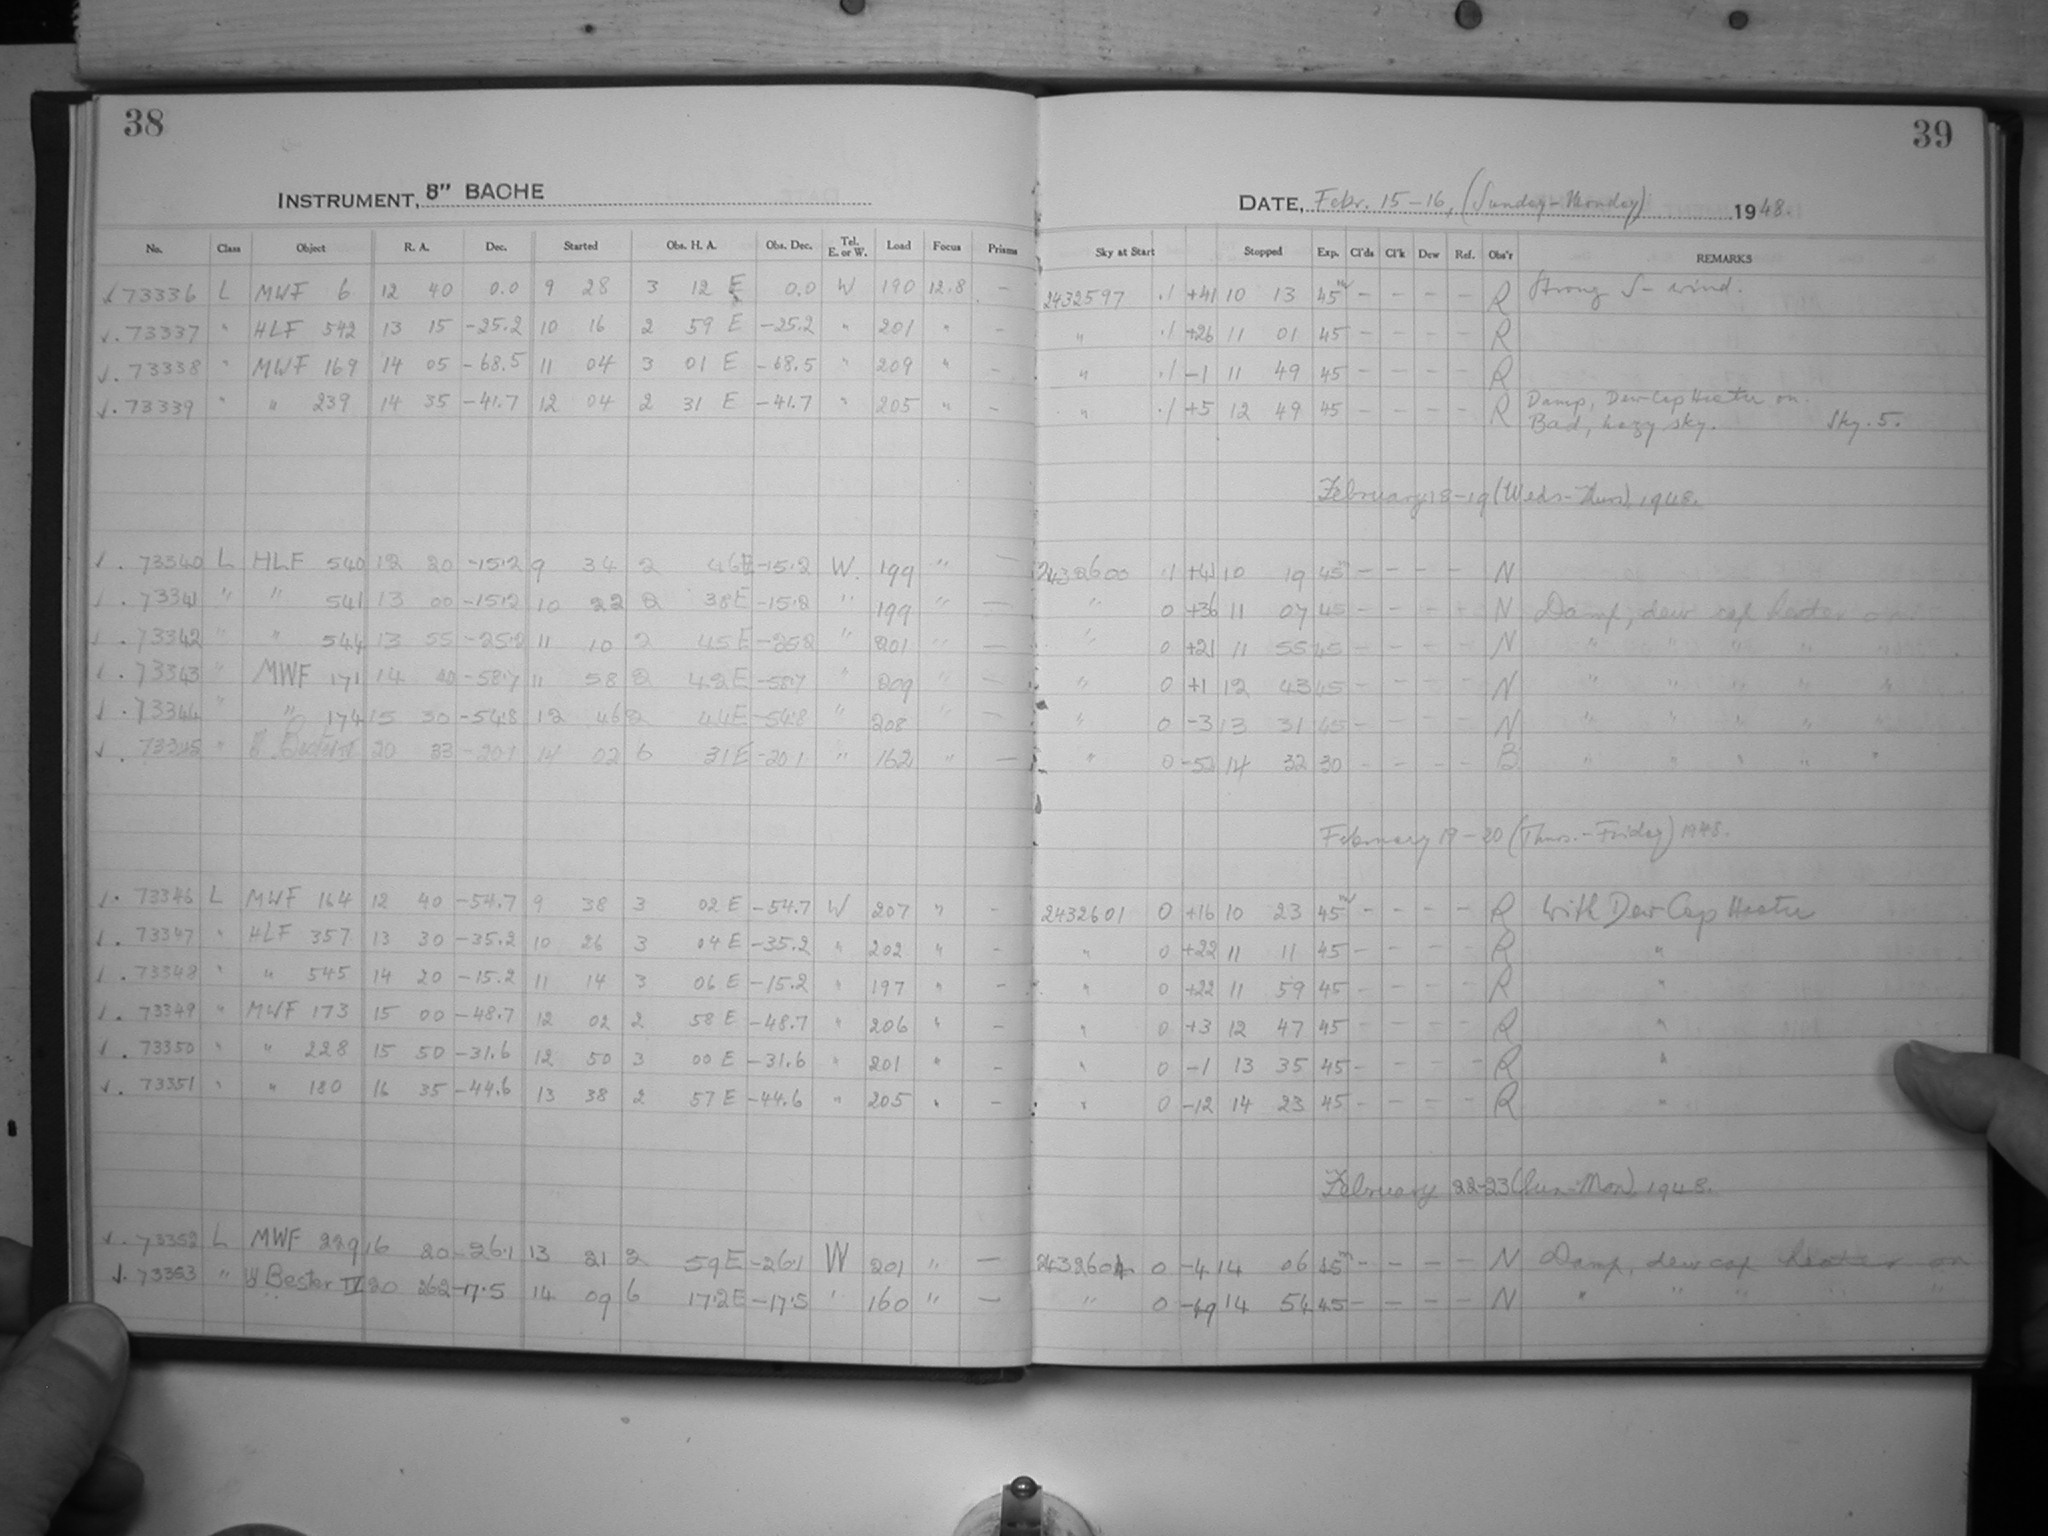 38
39
INSTRUMENT, 8" BACHE
DATE, Febr. 15-16, (Sunday-Monday) 1948.
No. Class Object R. A. Dec. Started Obs. H. A. Obs. Dec. Tel. E. or W. Load Focus Prisms Sky at Start Stopped Exp. Cl'ds Cl'k Dew Ref. Obs'r REMARKS
√ 73336 L MWF 6 12 40 0.0 9 28 3 12 E 0.0 W 190 12.8 - 2432597 .1 +41 10 13 45m - - - - R Strong S- wind.
√. 73337 " HLF 542 13 15 -25.2 10 16 2 59 E -25.2 " 201 " - " .1 +26 11 01 45 - - - - R
√. 73338 " MWF 169 14 05 -68.5 11 04 3 01 E -68.5 " 209 " - " .1 -1 11 49 45 - - - - R
√. 73339 " " 239 14 35 -41.7 12 04 2 31 E -41.7 " 205 " - " .1 +5 12 49 45 - - - - R Damp, Dew Cap Heater on.
Bad, hazy sky. Sky .5.
February 18-19 (Weds-Thurs) 1948.
√. 73340 L HLF 540 12 20 -15.2 9 34 2 46 E -15.2 W. 199 " - 2432600 .1 +41 10 19 45m - - - - N
√. 73341 " " 541 13 00 -15.2 10 22 2 38 E -15.2 " 199 " - " 0 +36 11 07 45 - - - - N Damp, dew cap heater on.
√. 73342 " " 544 13 55 -25.2 11 10 2 45 E -25.2 " 201 " - " 0 +21 11 55 45 - - - - N " " " " "
√. 73343 " MWF 171 14 40 -58.7 11 58 2 42 E -58.7 " 209 " - " 0 +1 12 43 45 - - - - N " " " " "
√. 73344 " " 174 15 30 -54.8 12 46 2 44 E -54.8 " 208 " - " 0 -3 13 31 45 - - - - N " " " " "
√. 73345 " Bester 20 33 -20.1 14 02 6 31 E -20.1 " 162 " - " 0 -52 14 32 30 - - - - B " " " " "
February 19-20 (Thurs.-Friday) 1948.
√. 73346 L MWF 164 12 40 -54.7 9 38 3 02 E -54.7 W 207 " - 2432601 0 +16 10 23 45m - - - - R With Dew Cap Heater
√. 73347 " HLF 357 13 30 -35.2 10 26 3 04 E -35.2 " 202 " - " 0 +22 11 11 45 - - - - R "
√. 73348 " " 545 14 20 -15.2 11 14 3 06 E -15.2 " 197 " - " 0 +22 11 59 45 - - - - R "
√. 73349 " MWF 173 15 00 -48.7 12 02 2 58 E -48.7 " 206 " - " 0 +3 12 47 45 - - - - R "
√. 73350 " " 228 15 50 -31.6 12 50 3 00 E -31.6 " 201 " - " 0 -1 13 35 45 - - - - R "
√. 73351 " " 180 16 35 -44.6 13 38 2 57 E -44.6 " 205 " - " 0 -12 14 23 45 - - - - R "
February 22-23 (Sun-Mon) 1948.
√. 73352 L MWF 229 16 20 -26.1 13 21 2 59 E -26.1 W 201 " - 2432604 0 -4 14 06 45m - - - - N Damp, dew cap heater on
√. 73353 " Bester IV 20 26.2 -17.5 14 09 6 17.2 E -17.5 " 160 " - " 0 -49 14 54 45 - - - - N " " " " "